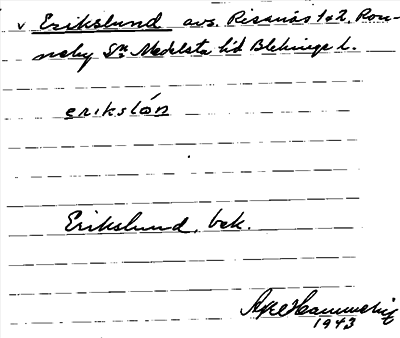 v Erikslund avs. Risanäs 1&2, Ron-
neby Sn Medelsta hd Blekinge l.
erikslón
Erikslund, bek.
Åke Hammelig
1943